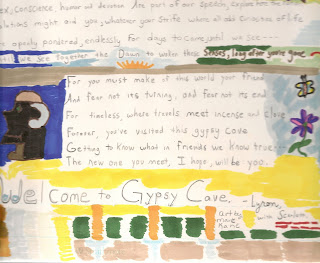 ex, conscience humor and devotion Are part of our speech, explore the
lutions might aid you, whatever your Strife, where all odd Curiosities of Life
openly pondered, endlessly for days to come, until we see---
we see together the Dawn to waken these Senses, long after you're gone.
For you must make of this world your friend
And fear not its turning, and fear not its end
For timeless, where travels meet incense and clove
Forever, you've visited this gypsy cove
Getting to know what in friends we know true
The new one you meet, I hope, will be you.
elcome to Gypsy Cave. -Lyron,
Art by
Kane
with